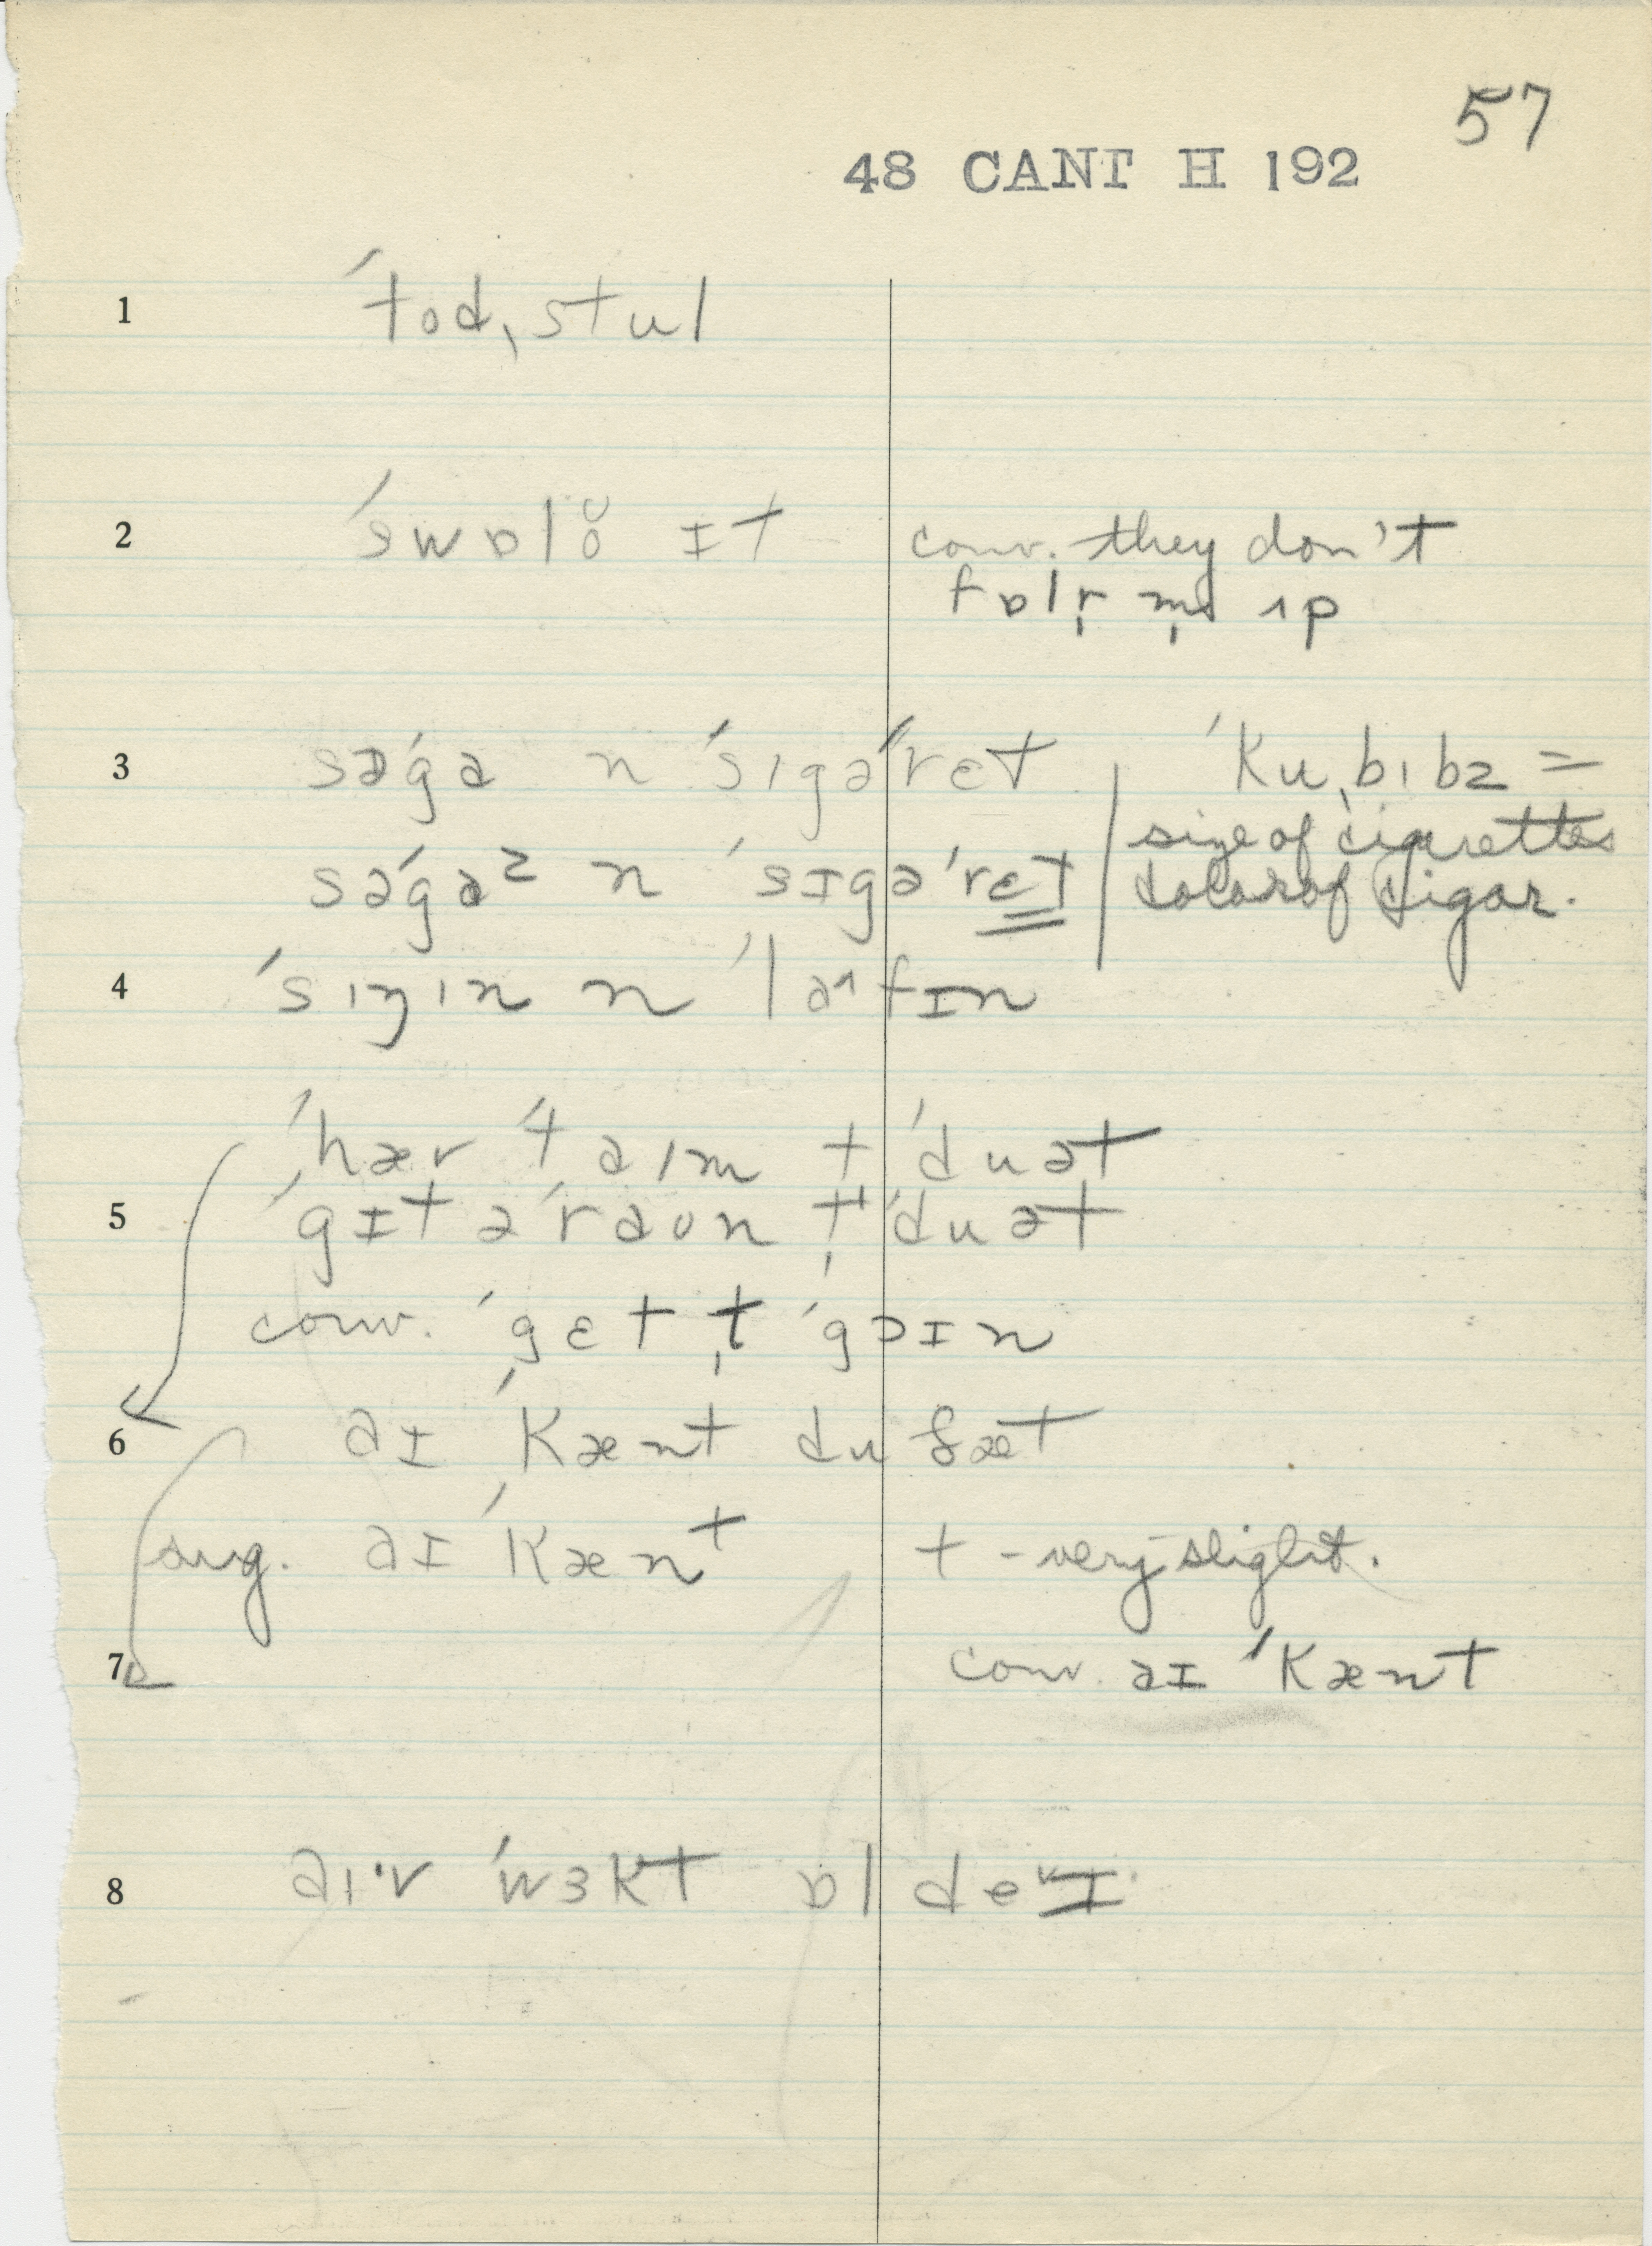 57
48 CANT H 192
1 ˈtodˌstul
2 ˈswɒlŏ ɪt conv. they don't
fɒlr̩ m̩ ʌp
3 səˈgɑ n ˈsɪgəˈrɛt ˈKuˌbɪbz =
size of cigarettes
səˈgɑᶻ n ˈsɪgəˈrɛt color of cigar.
4 ˈsɪŋɪn n ˈlɑ˄fɪn
ˈhær ˈtaɪm t ˈduət
5 ˈgɪt əˈraʊn t̩ ˈduət
conv. ˈgɛt t̩ ˈgɔɪn
6 aɪ ˈKænt du ðæt
sug. aɪ ˈKænᵗ t - very slight.
7 conv. aɪ ˈKænt
8 aɪˑv ˈwɜKt ɒl deᵛɪ